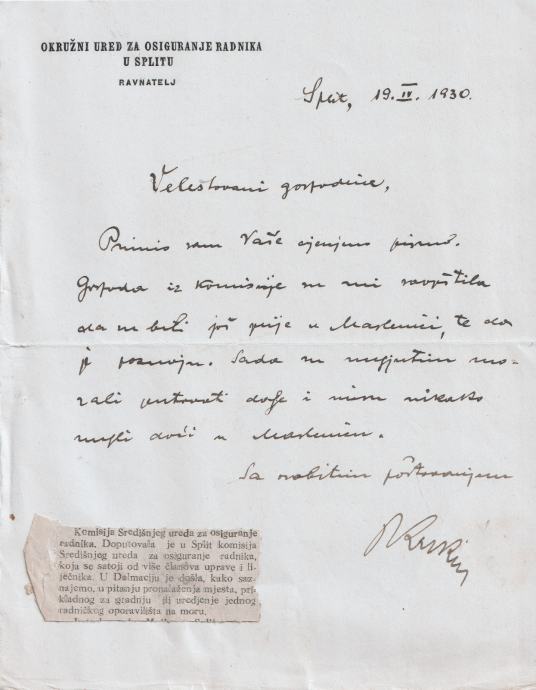 OKRUŽNI URED ZA OSIGURANJE RADNIKA
U SPLITU
RAVNATELJ
Split, 19. IV. 1930.
Veleštovani gospodine,
Primio sam Vaše cijenjeno pismo.
Gospoda iz komisije su mi saopštila
da su bili još prije u Maslinici, te da
je poznaju. Sada su međutim mo-
rali putovati dalje i nisu nikako
mogli doći u Maslinicu.
Sa osobitim poštovanjem
Komisija Središnjeg ureda za osiguranje
radnika. Doputovala je u Split komisija
Središnjeg ureda za osiguranje radnika,
koja se satoji od više članova uprave i li-
ječnika. U Dalmaciju je došla, kako saz-
najemo, u pitanju pronalaženja mjesta, pri-
kladnog za gradnju ili uredjenje jednog
radničkog oporavilišta na moru.